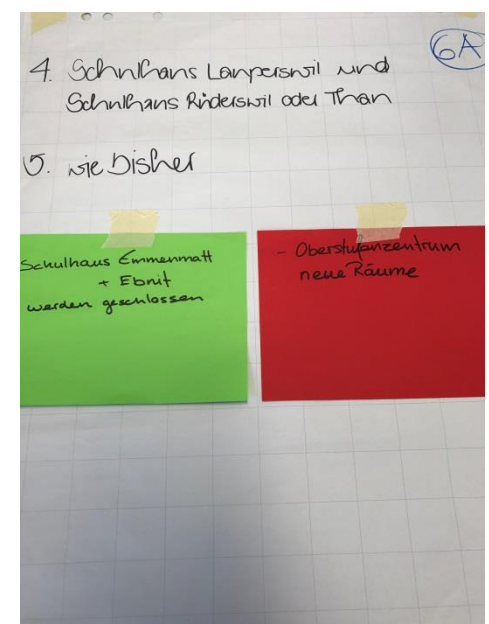 6A
4. Schulhaus Lauperswil und
Schulhaus Rüderswil oder Than
5. wie bisher
Schulhaus Emmenmatt
+ Ebnit
werden geschlossen
- Oberstufenzentrum
neue Räume